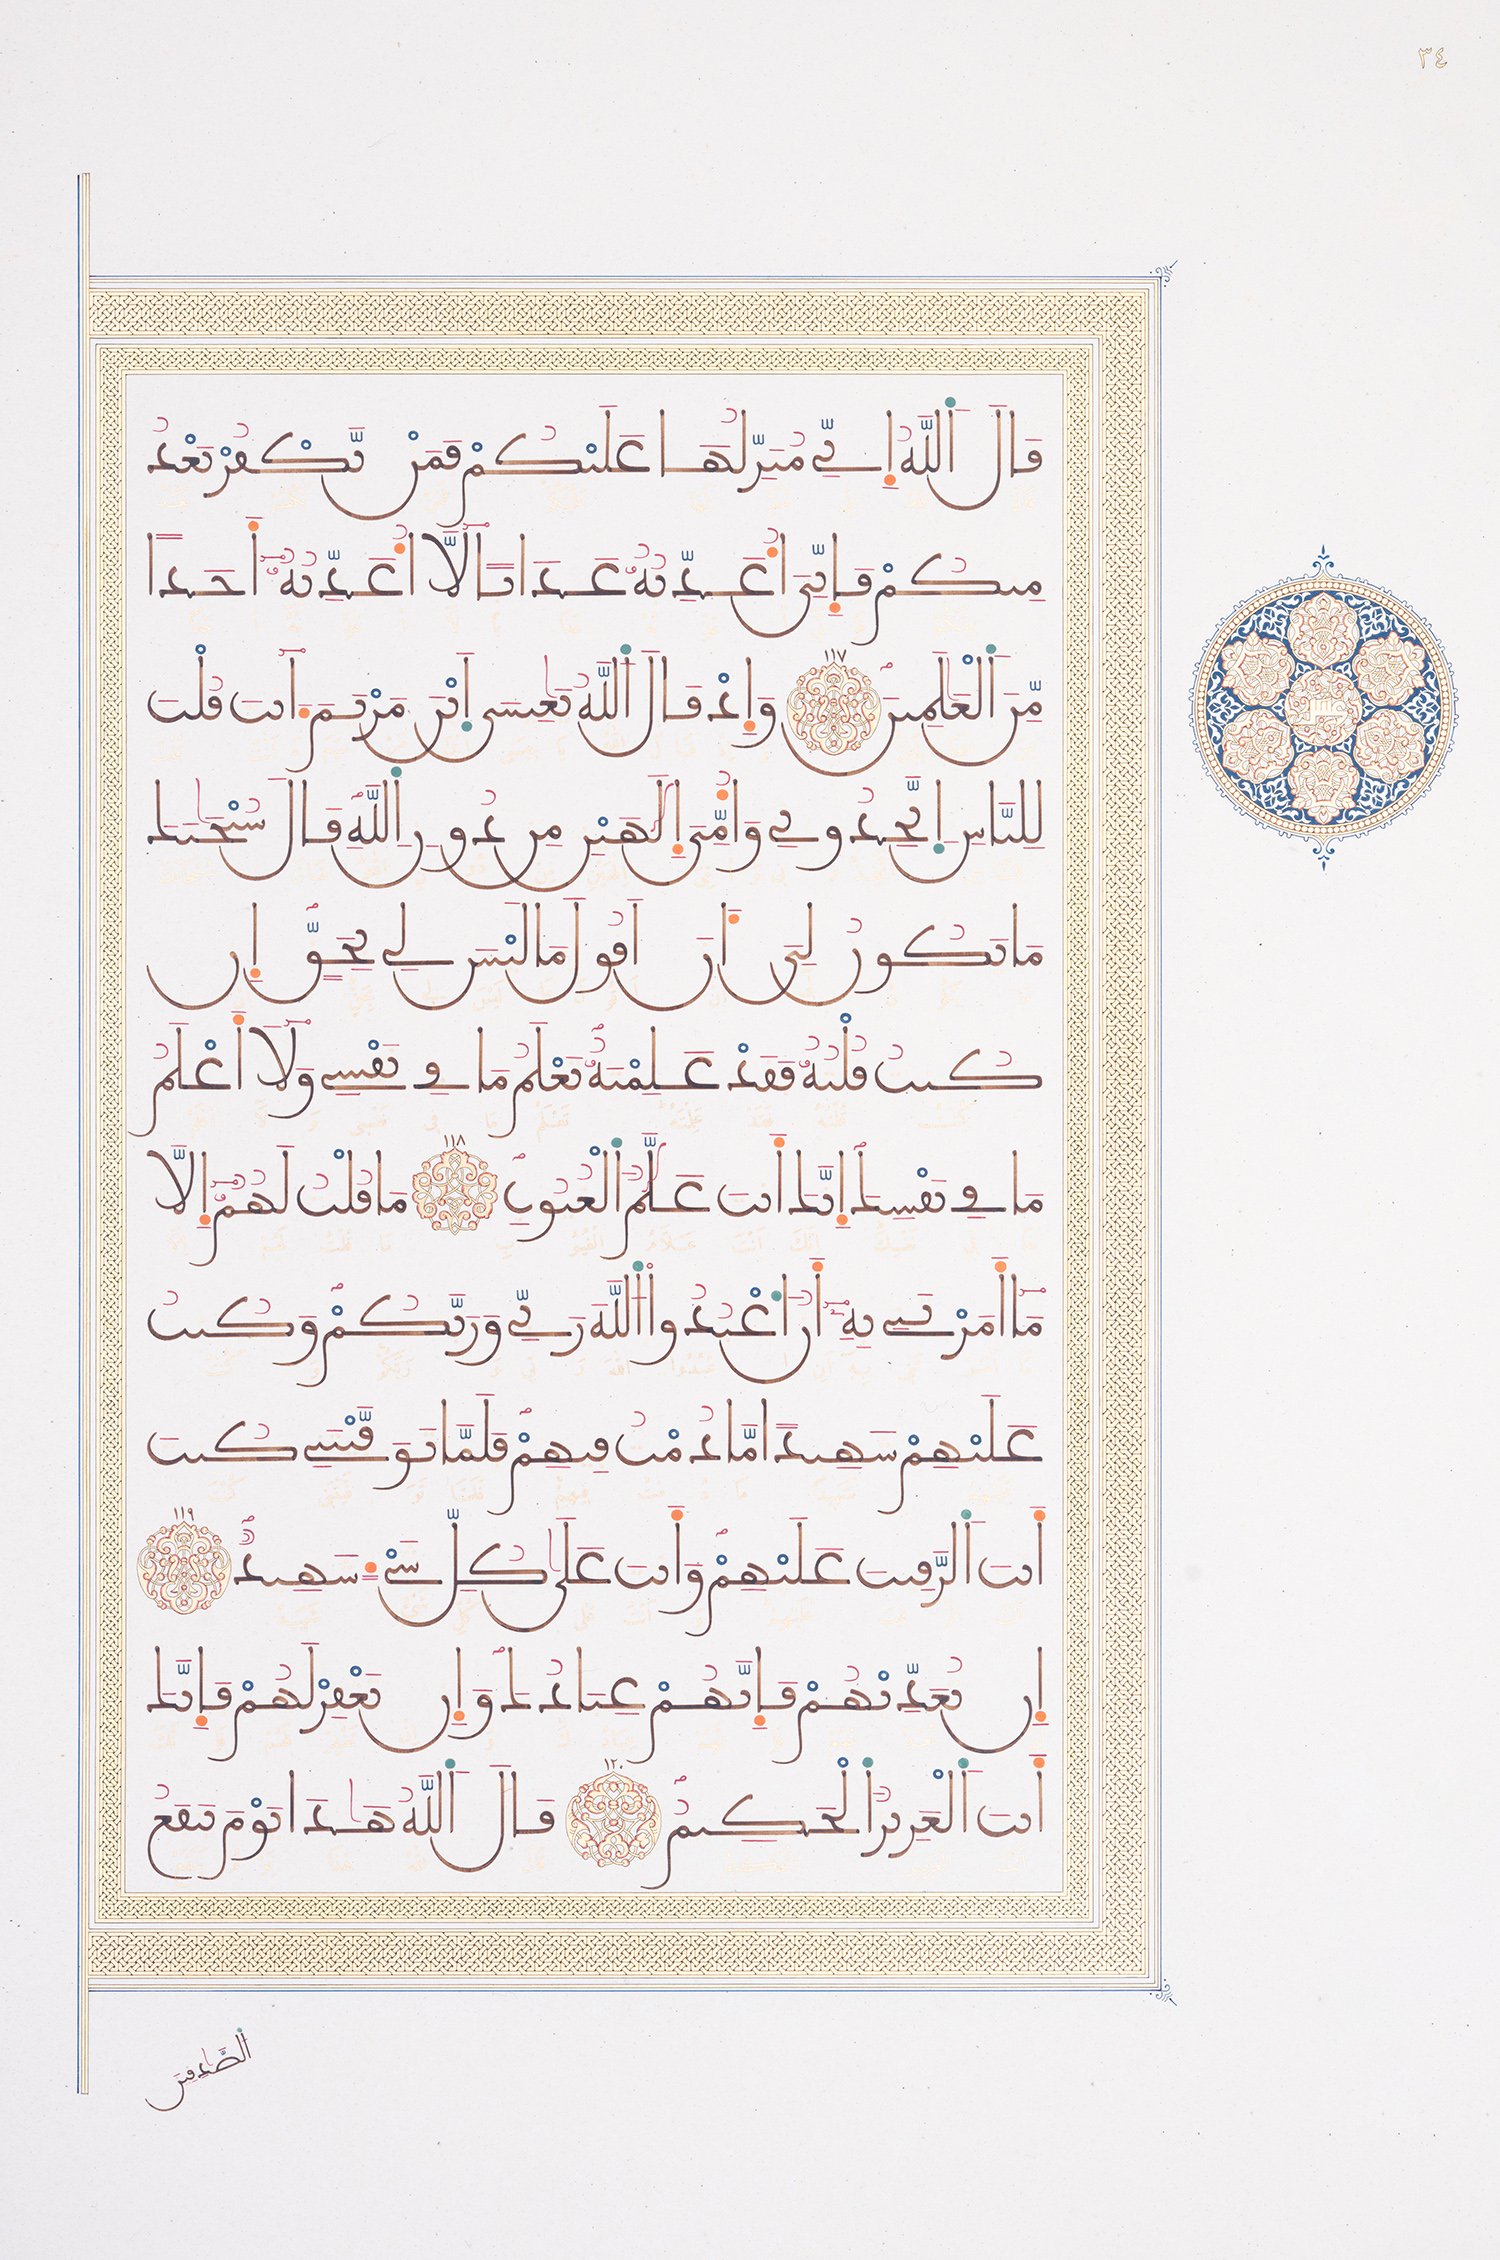 ٣٤
قَالَ ٱللَّهُ إِنِّي مُنَزِّلُهَا عَلَيْكُمْ فَمَنْ يَّكْفُرْ بَعْدُ
مِنكُمْ فَإِنِّيَ أُعَذِّبُهُ عَذَابًا لَّا أُعَذِّبُهُ أَحَدًا
مِّنَ ٱلْعَٰلَمِينَ ١١٧ وَإِذْ قَالَ ٱللَّهُ يَٰعِيسَى ٱبْنَ مَرْيَمَ ءَأَنتَ قُلْتَ
لِلنَّاسِ ٱتَّخِذُونِي وَأُمِّيَ إِلَٰهَيْنِ مِن دُونِ ٱللَّهِ قَالَ سُبْحَٰنَكَ
مَا يَكُونُ لِيَ أَنَ أَقُولَ مَا لَيْسَ لِي بِحَقٍّ إِن
كُنتُ قُلْتُهُ فَقَدْ عَلِمْتَهُ تَعْلَمُ مَا فِي نَفْسِي وَلَا أَعْلَمُ
مَا فِي نَفْسِكَ إِنَّكَ أَنتَ عَلَّٰمُ ٱلْغُيُوبِ ١١٨ مَا قُلْتُ لَهُمُ إِلَّا
مَا أَمَرْتَنِي بِهِ أَنُ ٱعْبُدُوا ٱللَّهَ رَبِّي وَرَبَّكُمْ وَكُنتُ
عَلَيْهِمْ شَهِيدًا مَّا دُمْتُ فِيهِمْ فَلَمَّا تَوَفَّيْتَنِي كُنتَ
أَنتَ ٱلرَّقِيبَ عَلَيْهِمْ وَأَنتَ عَلَىٰ كُلِّ شَيْءٍ شَهِيدٌ ١١٩
إِن تُعَذِّبْهُمْ فَإِنَّهُمْ عِبَادُكَ وَإِن تَغْفِرْ لَهُمْ فَإِنَّكَ
أَنتَ ٱلْعَزِيزُ ٱلْحَكِيمُ ١٢٠ قَالَ ٱللَّهُ هَٰذَا يَوْمَ يَنفَعُ
ٱلصَّٰدِقِينَ